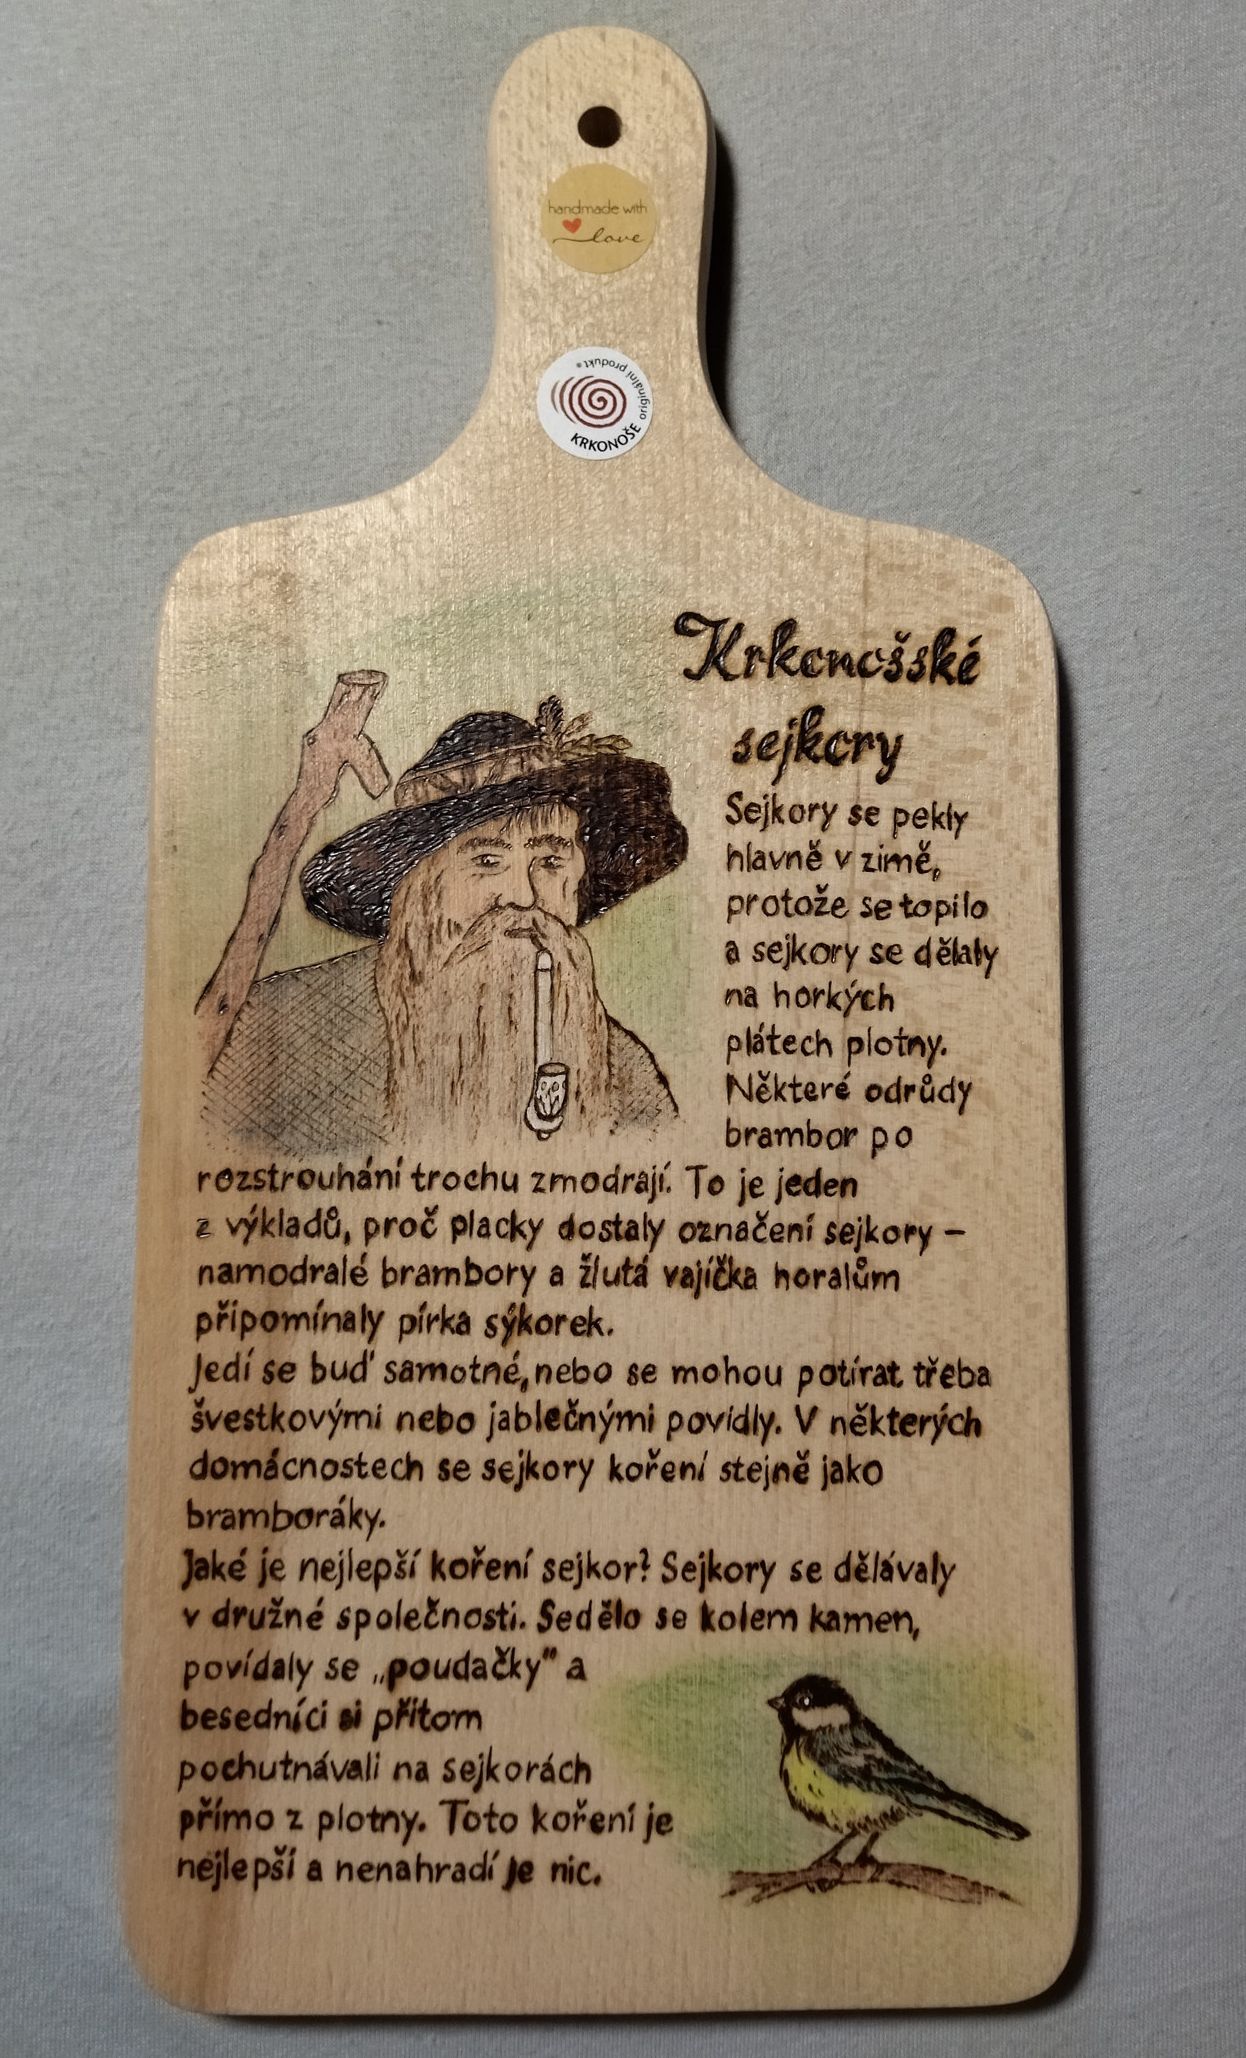 handmade with
love
originální produkt®
KRKONOŠE
Krkonošské
sejkory
Sejkory se pekly
hlavně v zimě,
protože se topilo
a sejkory se dělaly
na horkých
plátech plotny.
Některé odrůdy
brambor po
rozstrouhání trochu zmodrají. To je jeden
z výkladů, proč placky dostaly označení sejkory –
namodralé brambory a žlutá vajíčka horalům
připomínaly pírka sýkorek.
Jedí se buď samotné, nebo se mohou potírat třeba
švestkovými nebo jablečnými povidly. V některých
domácnostech se sejkory koření stejně jako
bramboráky.
Jaké je nejlepší koření sejkor? Sejkory se dělávaly
v družné společnosti. Sedělo se kolem kamen,
povídaly se „poudačky" a
besedníci si přitom
pochutnávali na sejkorách
přímo z plotny. Toto koření je
nejlepší a nenahradí je nic.